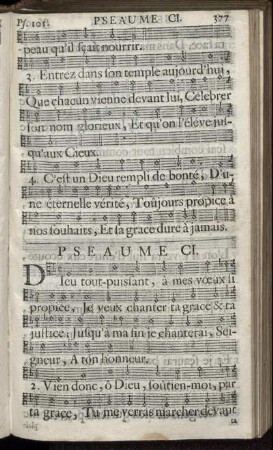 Ps. 101. PSEAUME CI. 377
peau qu'il sçait nourrir.
3. Entrez dans son temple aujourd'hui,
Que chacun vienne devant lui, Celebrer
son nom glorieux, Et qu'on l'éléve jus-
qu'aux Cieux.
4. C'est un Dieu rempli de bonté, D'u-
ne éternelle vérité, Toûjours propice à
nos souhaits, Et sa grace dure à jamais.
PSEAUME CI.
Dieu tout-puissant, à mes vœux si
propice, Je veux chanter ta grace & ta
justice; Jusqu'à ma fin je chanterai, Sei-
gneur, A ton honneur.
2. Vien donc, ô Dieu, soûtien-moi, par
ta grace, Tu me verras marcher devant
ta